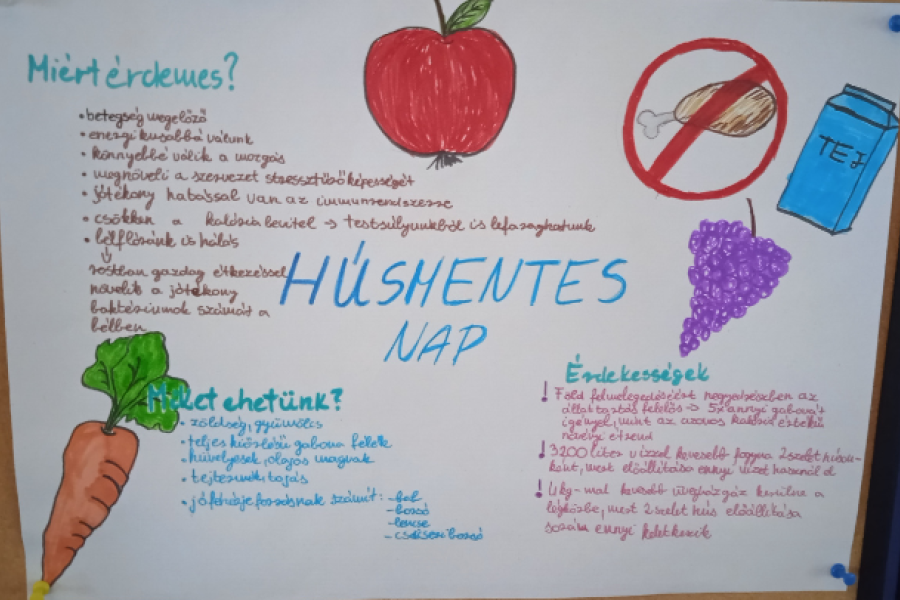 Miért érdemes?
• betegség megelőző
• energikusabbá válunk
• könnyebbé válik a mozgás
• megnöveli a szervezet stressztűrő képességét
• jótékony hatással van az immunrendszerre
• csökken a kalóriabevitel → testsúlyunkból is lefaraghatunk
• bélflóránk is hálás
↓
rostban gazdag étkezéssel
növelik a jótékony
baktériumok számát a
bélben
TEJ
HÚSMENTES
NAP
Miket ehetünk?
• zöldség, gyümölcs
• teljes kiőrlésű gabona félék
• hüvelyesek, olajos magvak
• tejtermék, tojás
• jó fehérje forrásnak számít: -bab
-borsó
-lencse
-csicseriborsó
Érdekességek
! Föld felmelegedéséért negyedrészben az
állattartás felelős → 5x annyi gabonát
igényel, mint az azonos kalória értékű
növényi étrend
! 3200 liter vízzel kevesebb fogyna 2 szelet húson-
ként, mert előállítása ennyi vizet használ el
! 4 kg-mal kevesebb üvegházgáz kerülne a
légkörbe, mert 2 szelet hús előállítása
során ennyi keletkezik